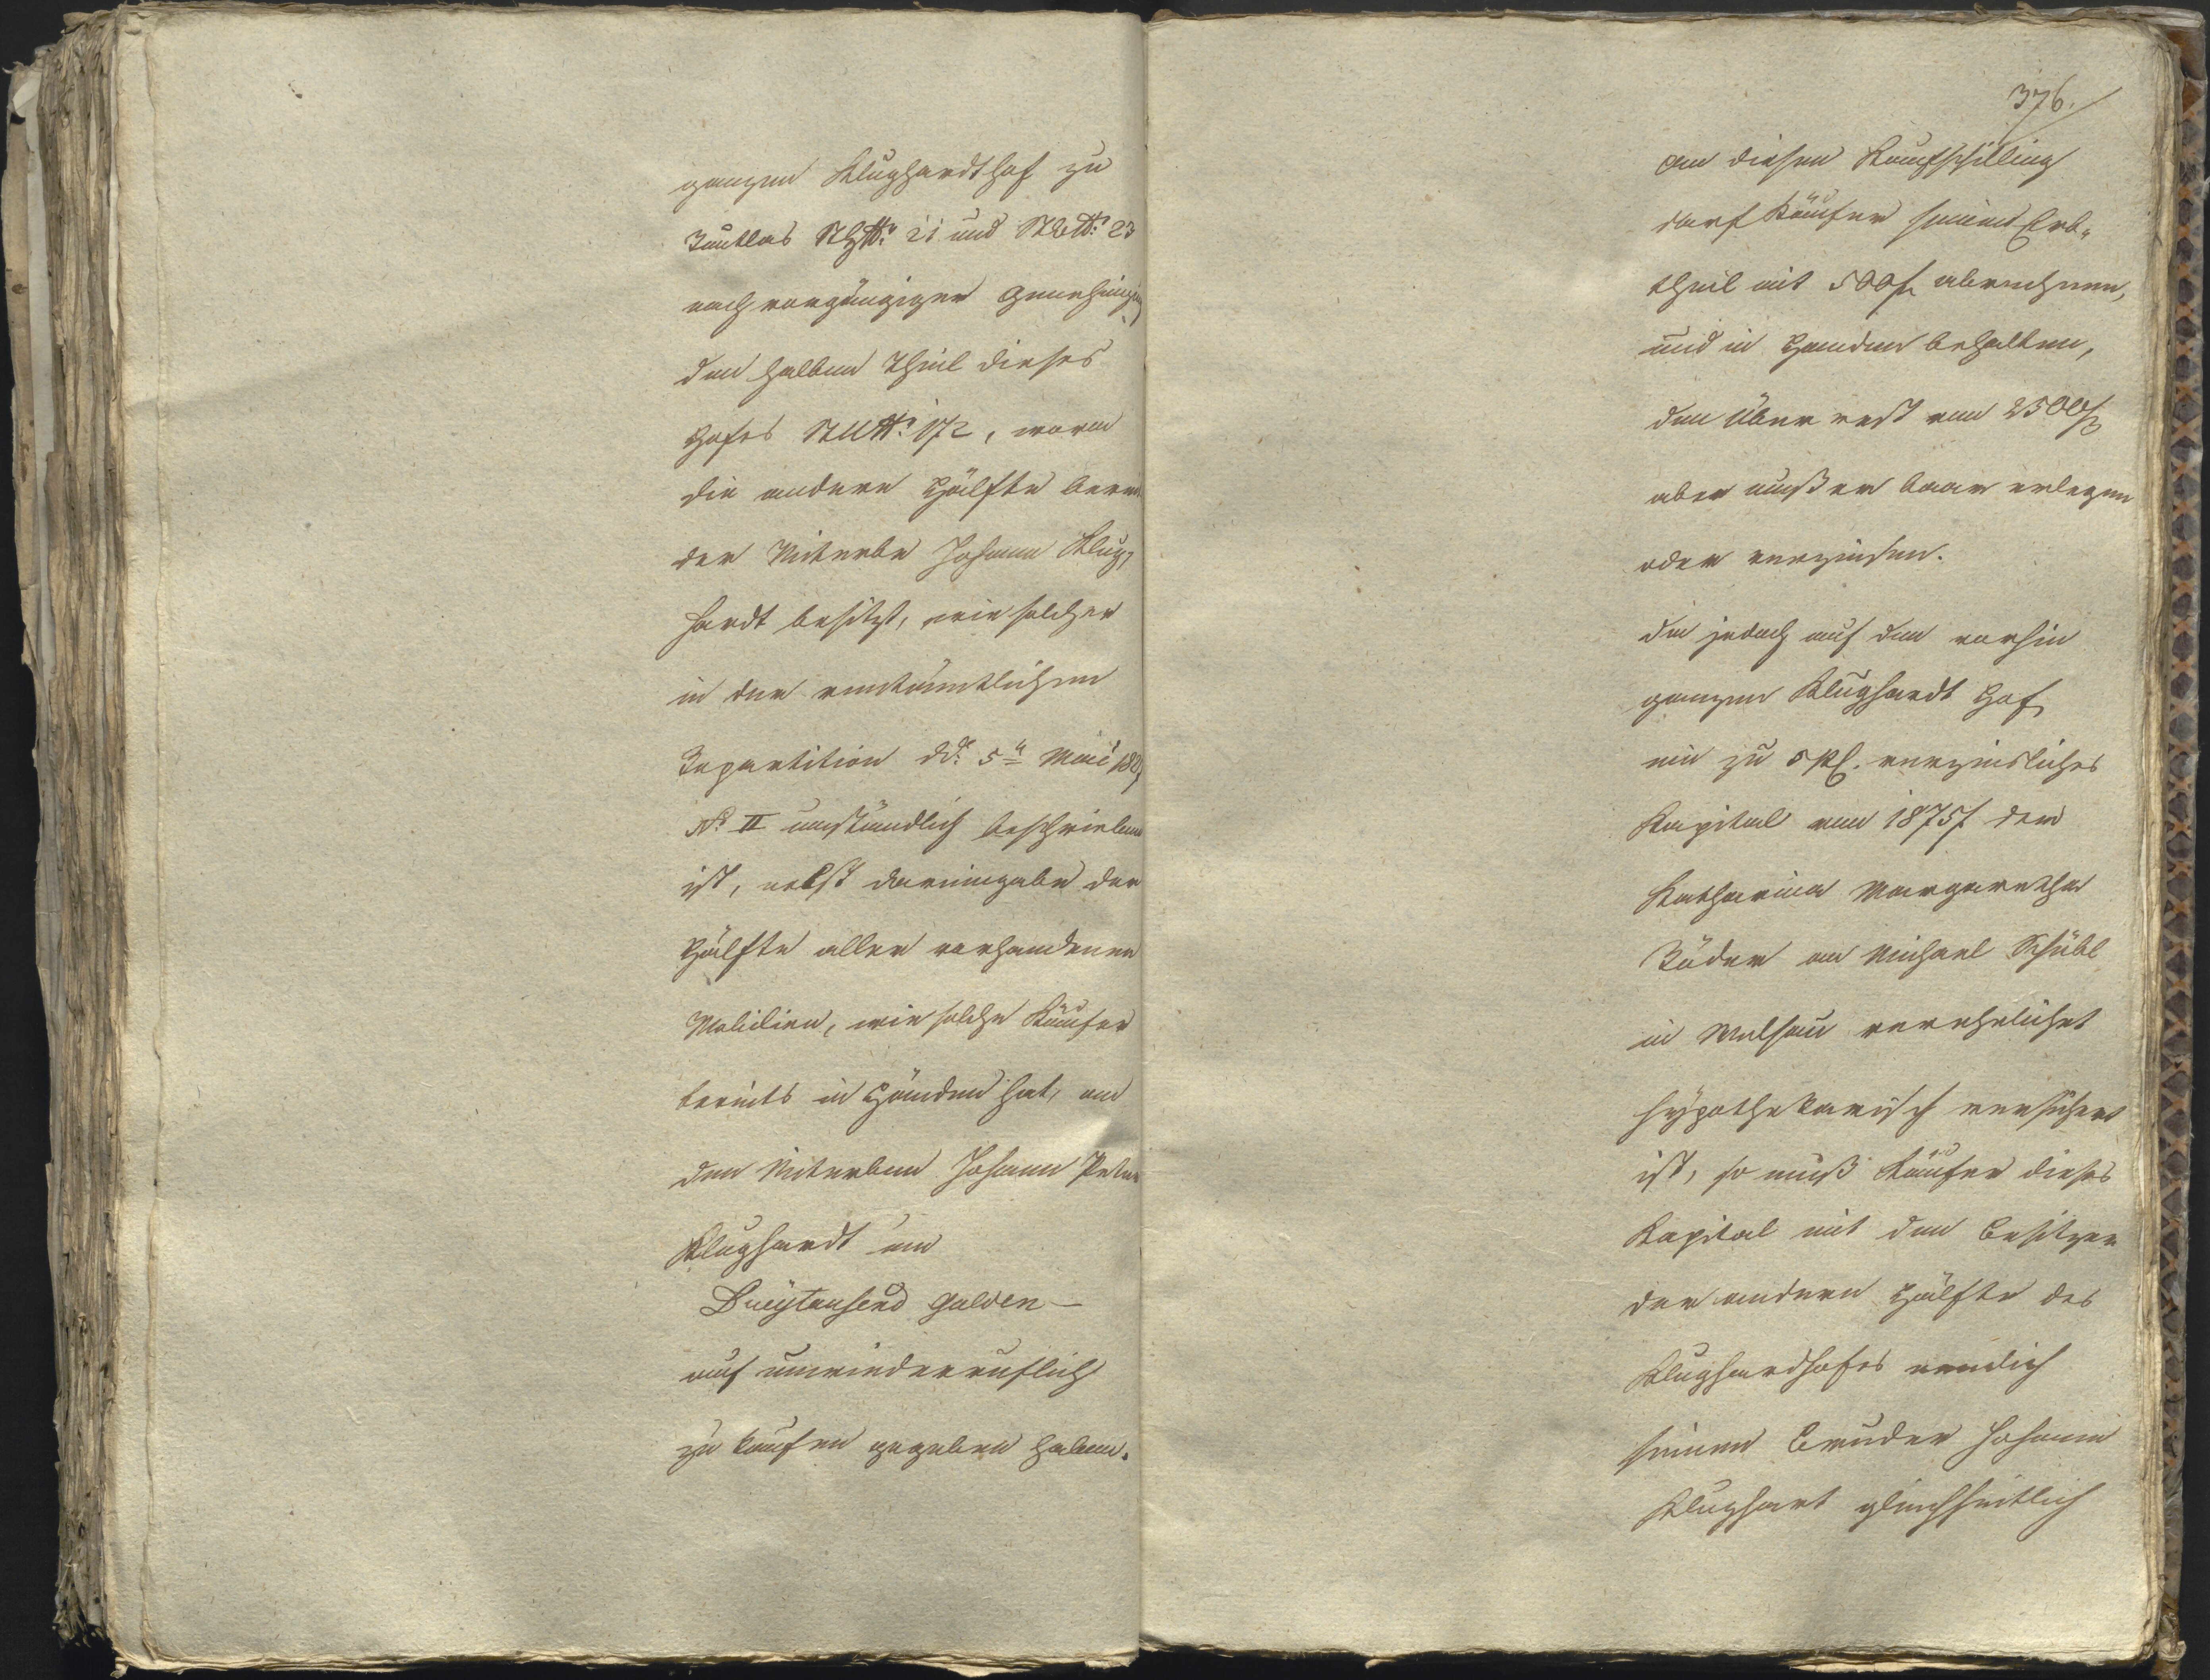 ganzen Klughardthof zu
und 23
nach vorgängiger Genehmigung
den halben Theil dieses
Hofes 172, wovon
die andere Hälfte bereits
der Miterbe Johann Klug,
hardt besitzt, wie solcher
in der rentämtlichen
Repartition dd: 5n Mai
No II umständlich beschrieben
ist, nebst dareingabe der
Hälfte aller vorhandenen
Mobilien, wie solche Käufer
bereits in Händen hat, an
den Miterben Johann Peter
Klughardt um
Dreytausend Gulden —
auf unwiederruflich
zu kaufen gegeben haben.
376.
an diesen Kaufschilling
darf Käufer seinen Erb„
theil mit 500f abrechnen,
und in Handen behalten,
den Überrest von 2500f
aber muß er baar erlegen
oder verzinsen.
da jedoch auf den vorhin
ganzen Klughardt Hof
ein zu 5 verzinsliches
Kapital von 1875f der
Katharina Margaretha
an Michael
in verehelicht
hypothekarisch versichert
ist, so muß Käufer dieses
Kapital mit dem Besitzer
der andern Hälfte des
Klughardhofes nemlich
seinem Bruder Johann
Klughart gleichheitlich